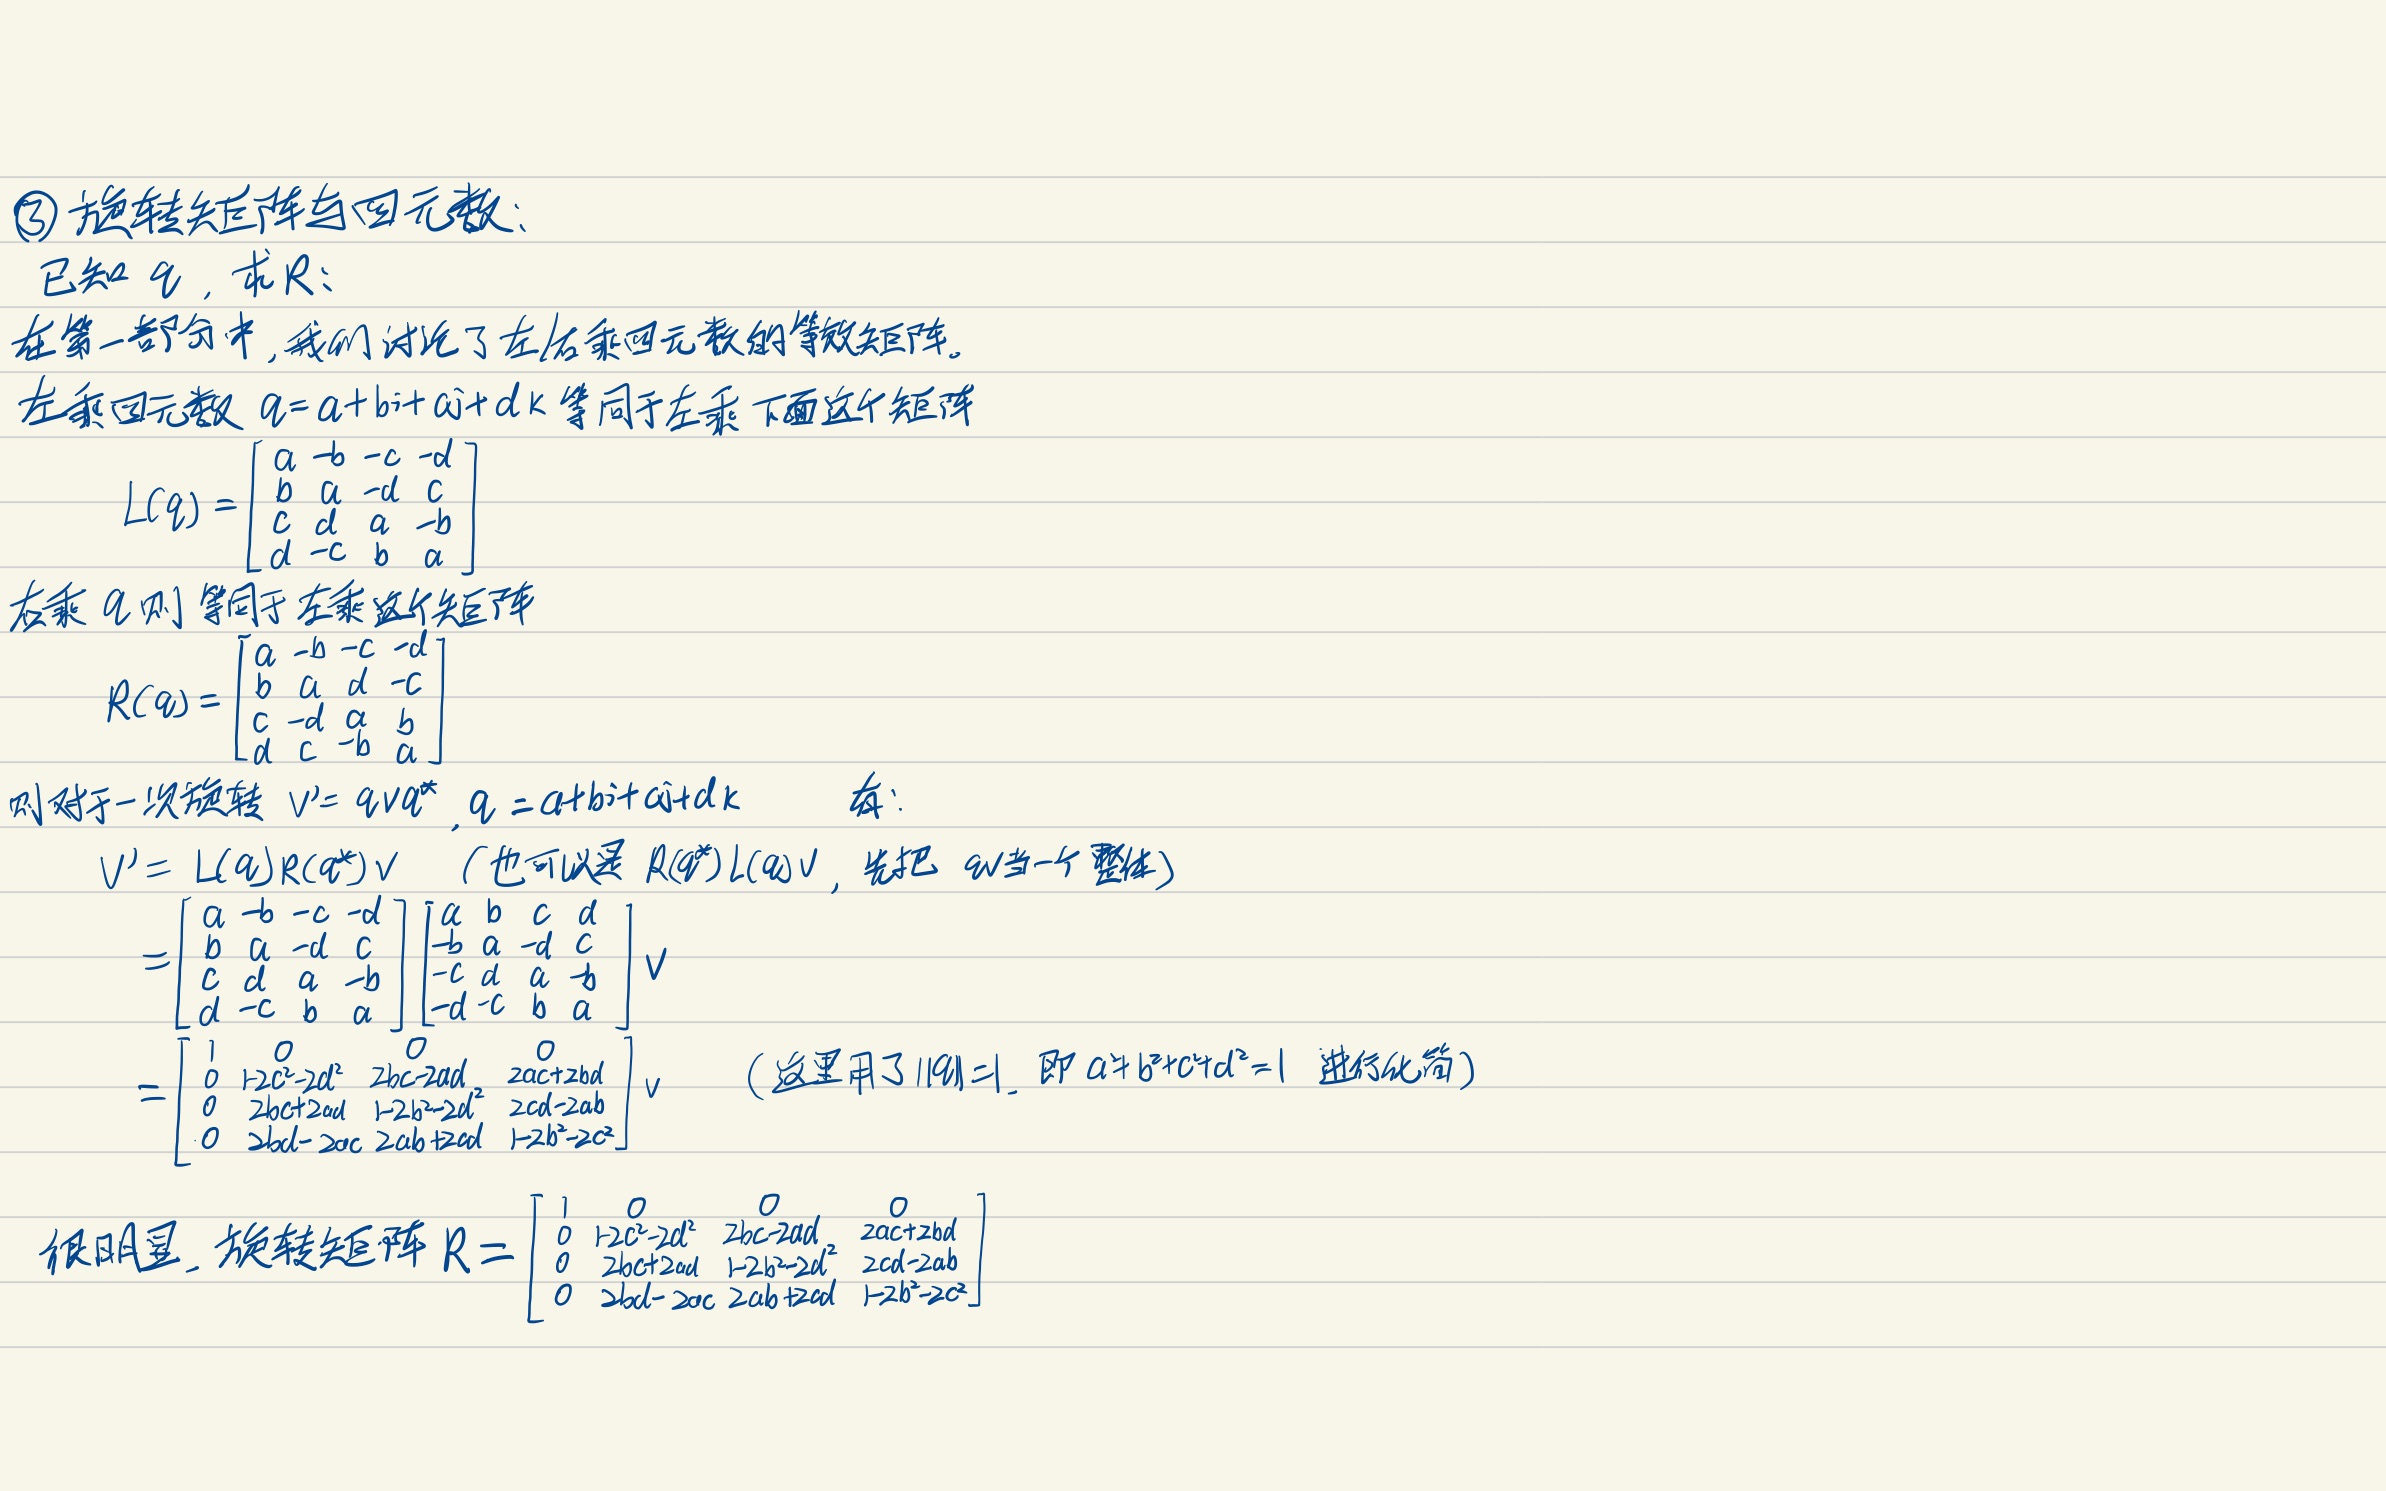 ③ 旋转矩阵与四元数:
已知 q, 求R:
在第一部分中,我们讨论了左/右乘四元数的等效矩阵。
左乘四元数 q=a+bi+cj+dk 等同于左乘下面这个矩阵
L(q) = [a -b -c -d
b a -d c
c d a -b
d -c b a]
右乘 q 则等同于左乘这个矩阵
R(q) = [a -b -c -d
b a d -c
c -d a b
d c -b a]
则对于一次旋转 v'= qvq*, q=a+bi+cj+dk 有:
v'= L(q)R(q*)v (也可以是 R(q*)L(q)v, 先把 qv当一个整体)
= [a -b -c -d] [a b c d]
[b a -d c] [-b a -d c] v
[c d a -b] [-c d a -b]
[d -c b a] [-d -c b a]
= [1 0 0 0
0 1-2c²-2d² 2bc-2ad 2ac+2bd
0 2bc+2ad 1-2b²-2d² 2cd-2ab
0 2bd-2ac 2ab+2cd 1-2b²-2c²] v (这里用了||q||=1, 即 a²+b²+c²+d²=1 进行化简)
很明显, 旋转矩阵 R = [1 0 0 0
0 1-2c²-2d² 2bc-2ad 2ac+2bd
0 2bc+2ad 1-2b²-2d² 2cd-2ab
0 2bd-2ac 2ab+2cd 1-2b²-2c²]